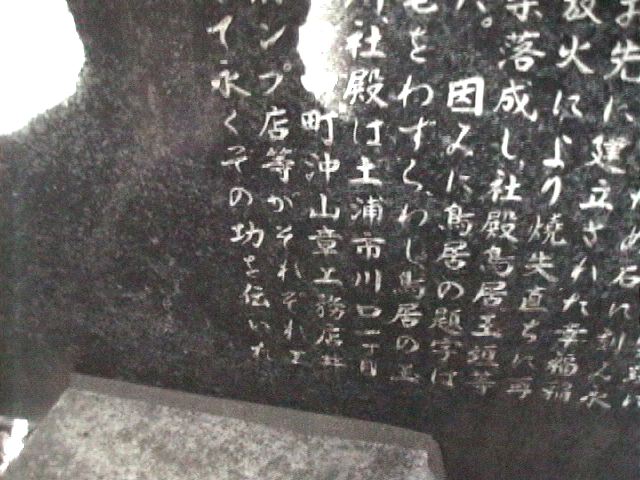 め石に刻み永
先に建立された幸稲荷
放火により焼失直ちに再
落成し社殿鳥居玉垣等
た。 因みに鳥居の題字は
をわずらわし鳥居の
社殿は土浦市川口一丁目
町沖山章工務店
ンプ店等がそれぞれ
て永くその功を伝いた